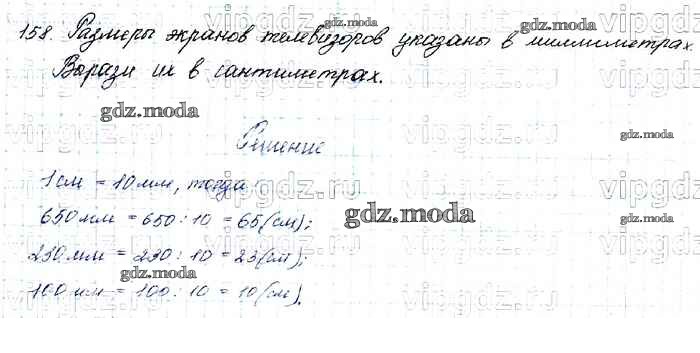 158. Размеры экранов телевизоров указаны в миллиметрах
Вырази их в сантиметрах.
Решение
1 см = 10 мм, тогда
650 мм = 650 : 10 = 65 (см);
230 мм = 230 : 10 = 23 (см);
100 мм = 100 : 10 = 10 (см).
gdz.moda
gdz.moda
gdz.moda
gdz.moda
gdz.moda
gdz.moda
gdz.moda
vipgdz.ru
vipgdz.ru
vipgdz.ru